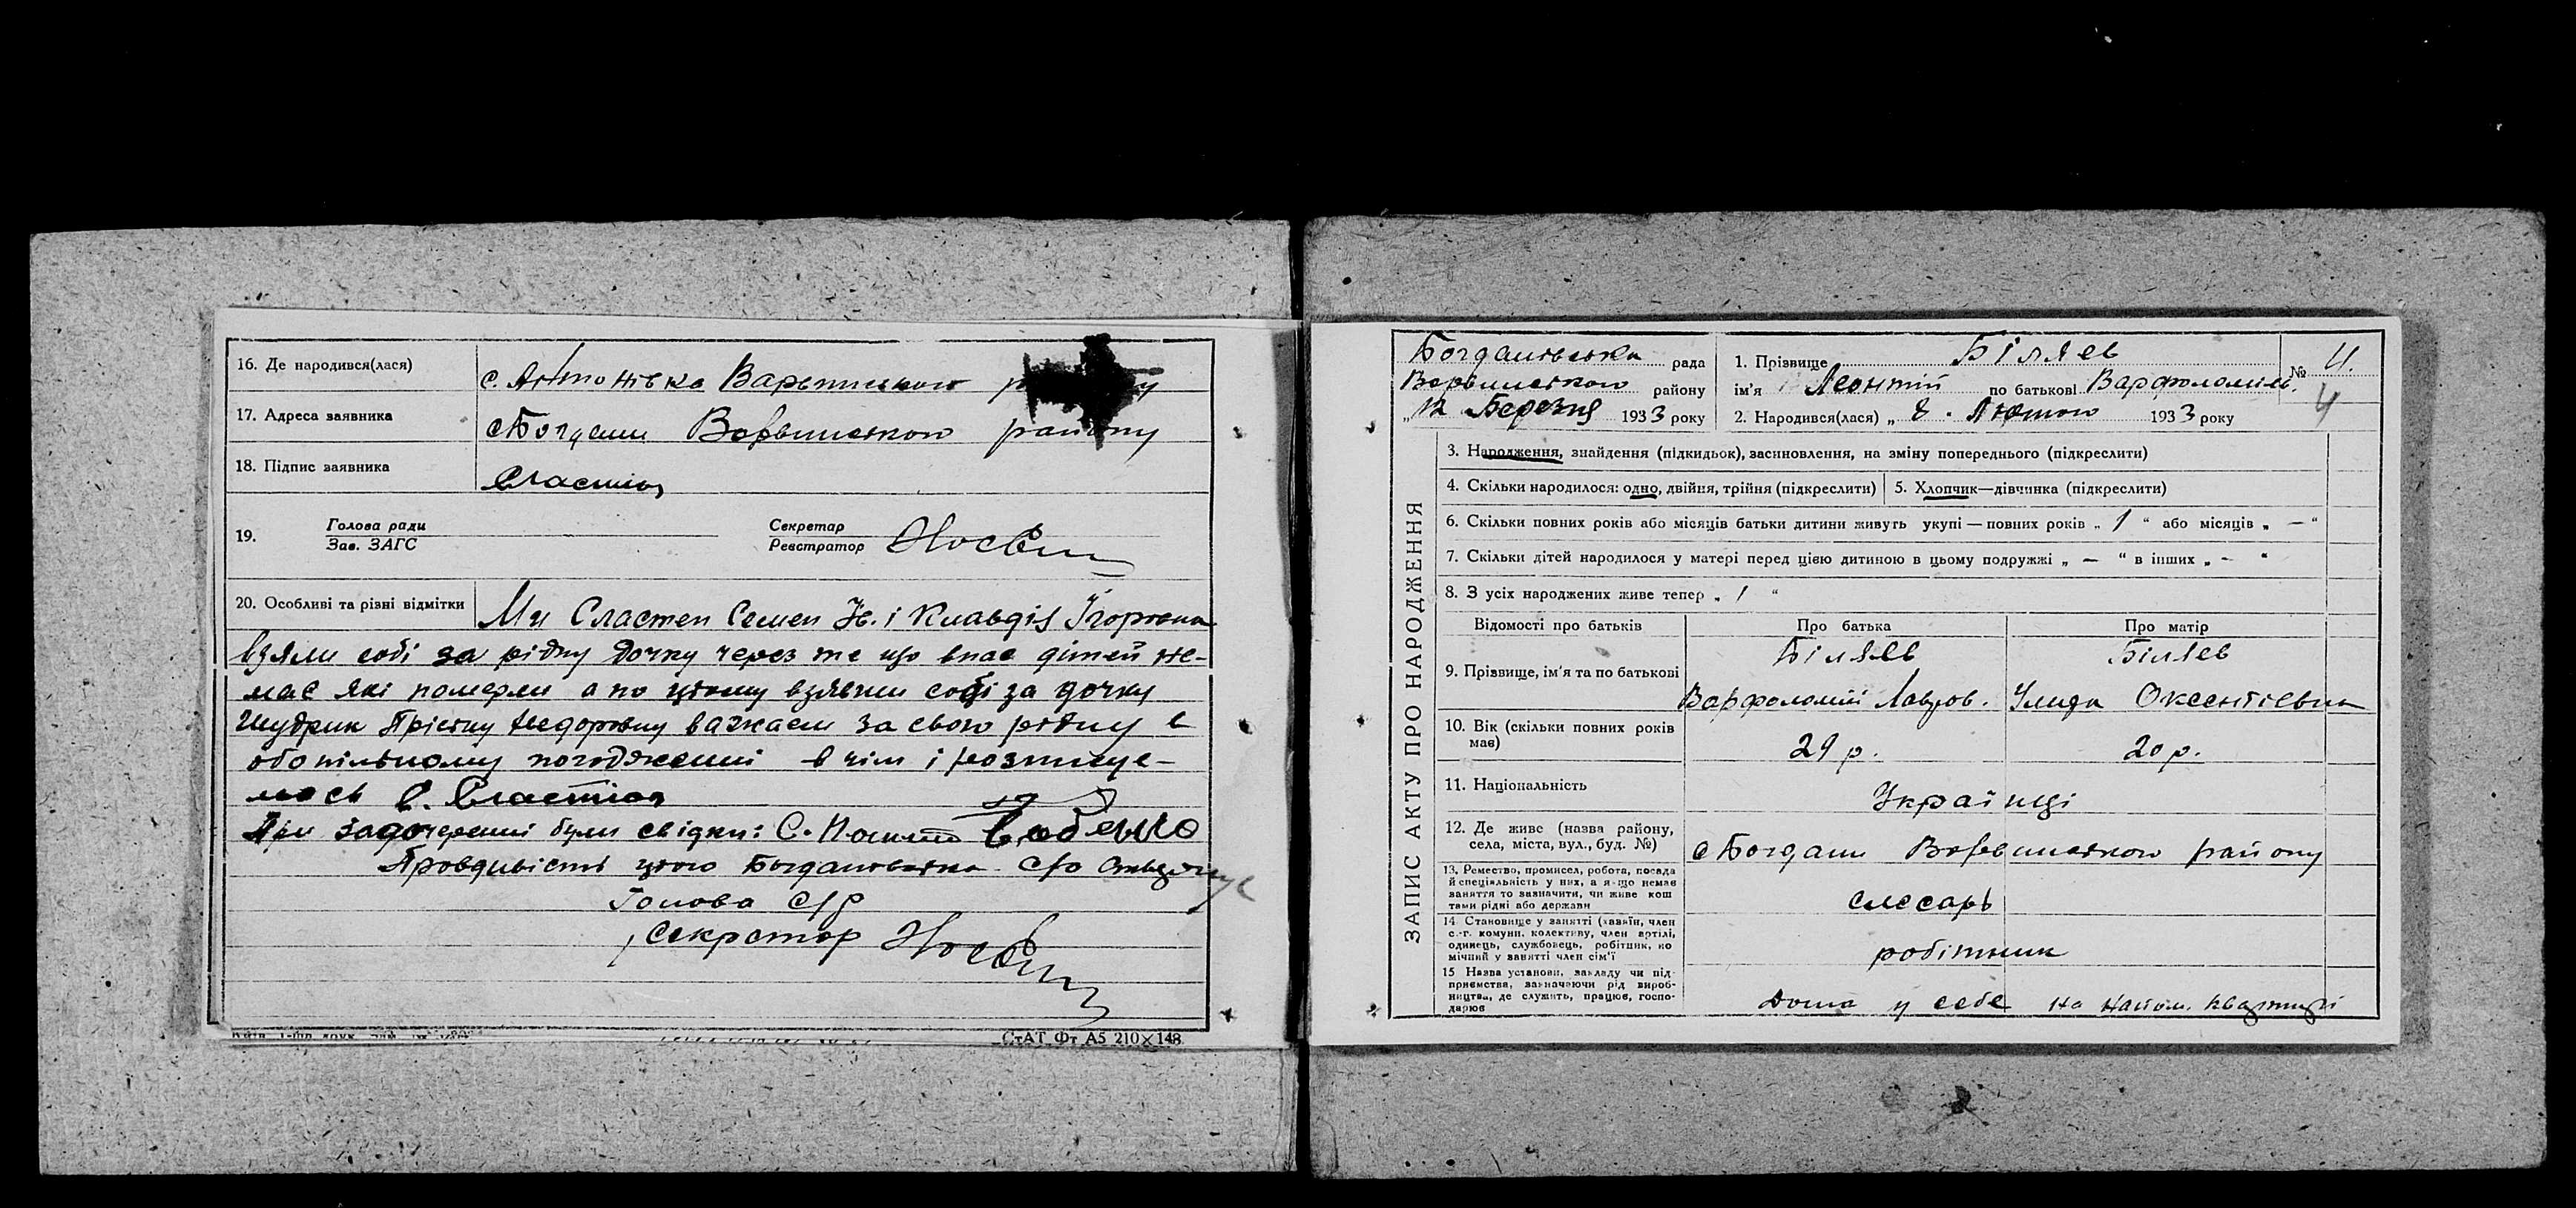 16. Де народився(лася)
с. Антонівка Варвинського
17. Адреса заявника
с Богдани Варвинського району
18. Підпис заявника
Сластін
19. Голова ради
Зав. ЗАГС
Секретар
Реєстратор
20. Особливі та різні відмітки
Ми Сластен Семен Ів. і Клавдія Ігоровна
взяли собі за рідну дочку через те що внас дітей не-
має які померли а по цьому взявши собі за дочку
Шудрик Федоровну важаєм за свою рідну в
обопільному погодженні в чім і розписує-
мось С. Сластін
При задочеренні були свідки: С.
Правдивість цього Богданівська с/р
Голова с/р
Секретар
СтАТ Фт А5 210×148
ЗАПИС АКТУ ПРО НАРОДЖЕННЯ
Богданівська рада
Варвинського району
„12 Березня 1933 року
1. Прізвище Біляєв
ім'я Леонтій по батькові Варфоломіїв.
№ 4.
4
2. Народився(лася) „ 8 . Лютого 1933 року
3. Народження, знайдення (підкидьок), засиновлення, на зміну попереднього (підкреслити)
4. Скільки народилося: одно, двійня, трійня (підкреслити)
5. Хлопчик—дівчинка (підкреслити)
6. Скільки повних років або місяців батьки дитини живуть укупі — повних років „ 1 “ або місяців „ — “
7. Скільки дітей народилося у матері перед цією дитиною в цьому подружжі „ — “ в інших „ — “
8. З усіх народжених живе тепер „ 1 “
Відомості про батьків
Про батька
Про матір
9. Прізвище, ім'я та по батькові
Біляєв
Варфоломій Лавров.
Біляєв
Улита Оксентієвна
10. Вік (скільки повних років має)
29 р.
20 р.
11. Національність
Українці
12. Де живе (назва району,
села, міста, вул., буд. №)
с Богдани Варвинського району
13. Ремество, промисел, робота, посада
й спеціяльність у них, а якщо немає
заняття то зазначити, чи живе кош
тами рідні або держави
слесарь
14. Становище у занятті (хазяїн, член
с.-г. комуни, колективу, член артілі,
одинець, службовець, робітник, по
мічний у занятті член сім'ї
робітник
15 Назва установи, закладу чи під-
приємства, зазначаючи рід вироб-
ництва, де служить, працює, госпо-
дарює
Дома у себе на найом. квартирі